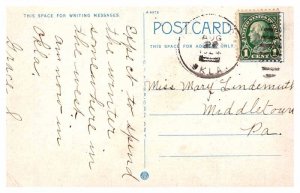 THIS SPACE FOR WRITING MESSAGES.
POST CARD
THIS SPACE FOR ADDRESS ONLY.
AUG
OKLA.
1 CENT 1
Expect to spend
the winter
somewhere in
the west.
am now in
Okla.
Grace S
Miss Mary Lindemuth
Middletown
Pa.